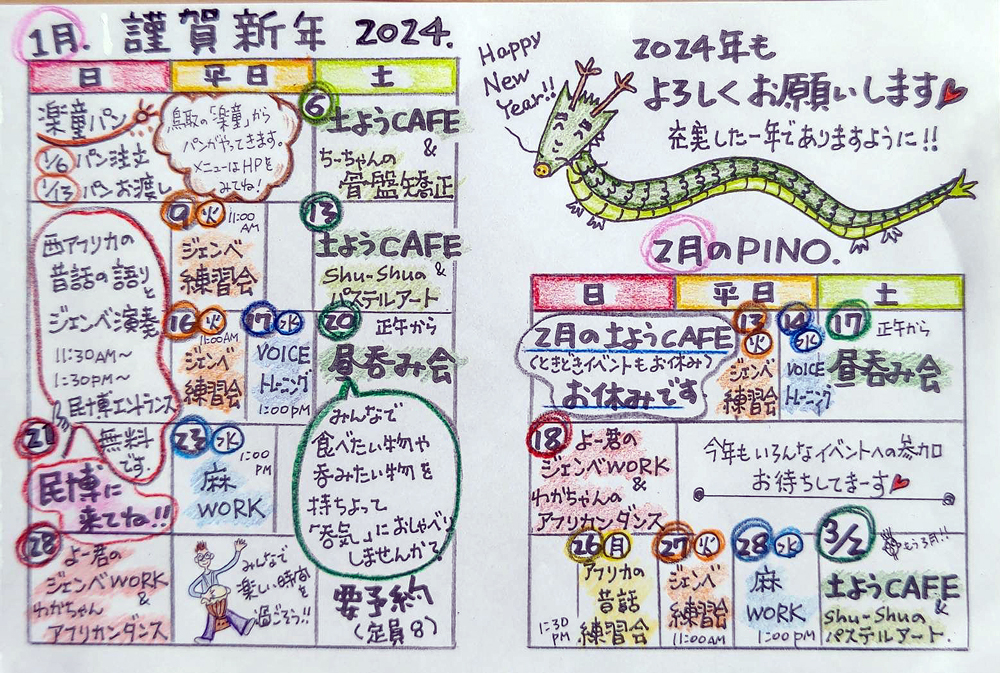 1月. 謹賀新年 2024.
日 平日 土
楽童パン
1/6 パン注文
1/13 パンお渡し
鳥取の「楽童」から
パンがやってきます。
メニューはHPを
みてね!
6
土ようCAFE
&
ちーちゃんの
骨盤矯正
西アフリカの
昔話の語り
と
ジェンベ演奏
11:30AM~
1:30PM~
民博エントランス
無料
です。
21
民博に
来てね!!
9 火 11:00
AM
ジェンベ
練習会
13
土ようCAFE
&
Shu-Shuの
パステルアート
16 火
11:00AM
ジェンベ
練習会
17 水
VOICE
トレーニング
1:00PM
20 正午から
昼呑み会
みんなで
食べたい物や
呑みたい物を
持ちよって
「呑気」におしゃべり
しませんか?
要予約
(定員8)
23 水
1:00
PM
麻
WORK
28
よー君の
ジェンベWORK
&
わかちゃん
アフリカンダンス
みんなで
楽しい時間を
過ごそう!!
Happy
New
Year!!
2024年も
よろしくお願いします
充実した一年でありますように!!
2月のPINO.
日 平日 土
2月の土ようCAFE
(ときどきイベントもお休み)
お休みです
13
火
ジェンベ
練習会
14
水
VOICE
トレーニング
17 正午から
昼呑み会
18
よー君の
ジェンベWORK
&
わかちゃんの
アフリカンダンス
今年もいろんなイベントへの参加
お待ちしてまーす
26 月
アフリカの
昔話
練習会
1:30
PM
27 火
ジェンベ
練習会
11:00AM
28 水
麻
WORK
1:00PM
3/2
もう3月!!
土ようCAFE
&
Shu-Shuの
パステルアート.